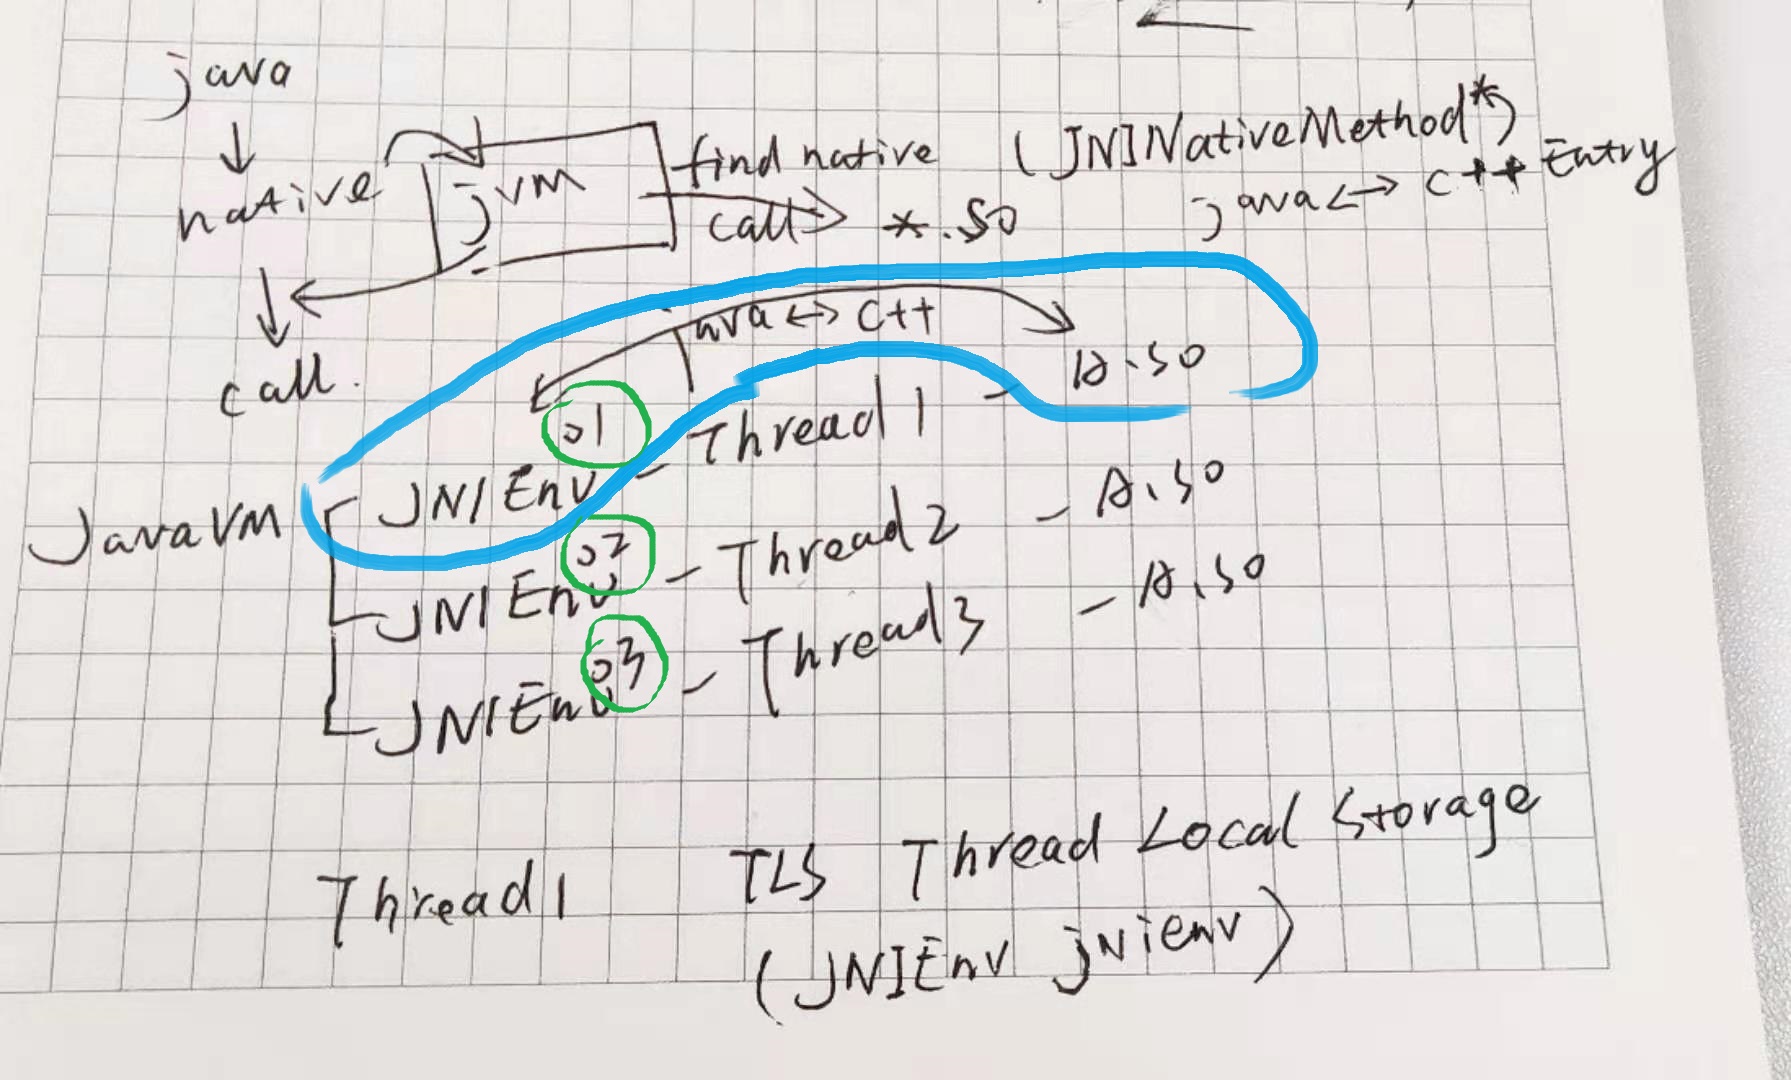 java
native
jvm
find native
call
*.so
(JNINativeMethod*)
java <-> C++ Entry
call.
java <-> C++
A.so
01
JNIEnv - Thread1 -
JavaVM
02
JNIEnv - Thread2 - A.so
03
JNIEnv - Thread3 - A.so
Thread1
TLS Thread Local Storage
(JNIEnv jnienv)